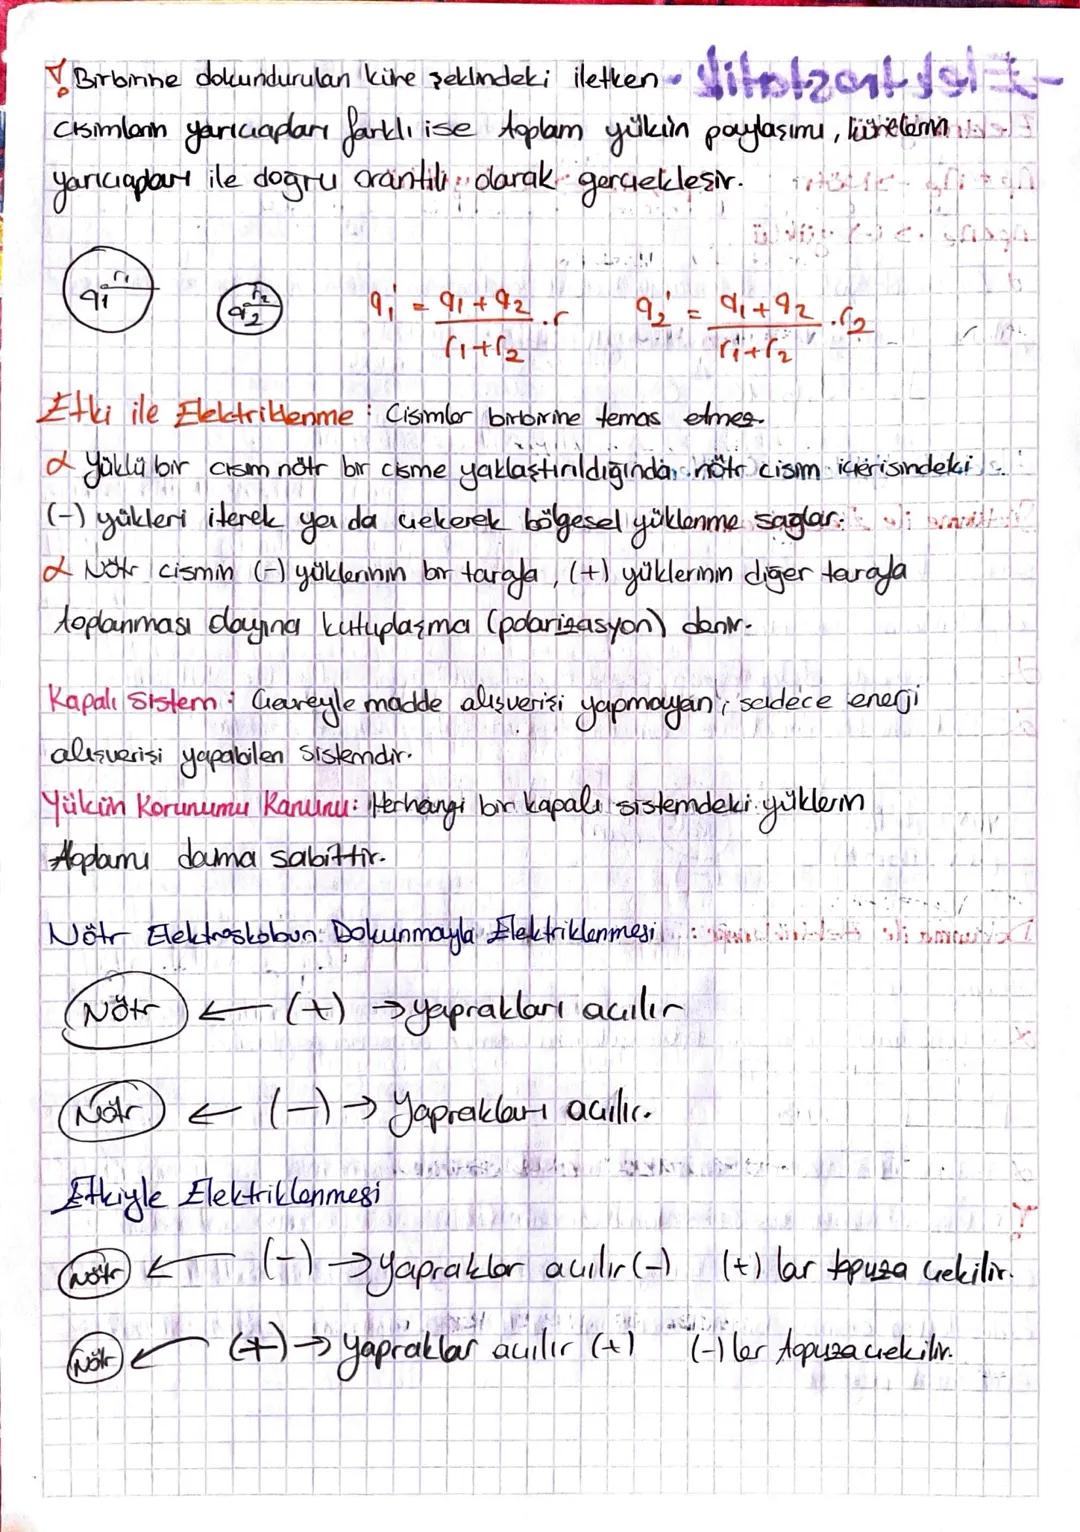 Birbirine dokundurulan küre şeklindeki iletken
cisimlerin yarıçapları farklı ise toplam yükün paylaşımı, kürelerin
yarıçapları ile doğru orantılı olarak gerçekleşir.
q1 r1 q2 r2 q1' = q1 + q2 / r1 + r2 . r q2' = q1 + q2 / r1 + r2 . r2
Etki ile Elektriklenme : Cisimler birbirine temas etmez.
α Yüklü bir cisim nötr bir cisme yaklaştırıldığında nötr cisim içerisindeki
(-) yükleri iterek ya da çekerek bölgesel yüklenme sağlar.
α Nötr cismin (-) yüklerinin bir tarafa, (+) yüklerinin diğer tarafa
toplanması olayına kutuplaşma (polarizasyon) denir.
Kapalı Sistem : Çevreyle madde alışverişi yapmayan, sadece enerji
alışverişi yapabilen sistemdir.
Yükün Korunumu Kanunu: Herhangi bir kapalı sistemdeki yüklerin
toplamı daima sabittir.
Nötr Elektroskobun Dokunmayla Elektriklenmesi
Nötr ← (+) → yaprakları açılır
Nötr ← (-) → Yaprakları açılır.
Etkiyle Elektriklenmesi
Nötr ← (-) → yapraklar açılır (-) (+) lar topuza çekilir.
Nötr ← (+) → yapraklar açılır (+) (-) ler topuza çekilir.